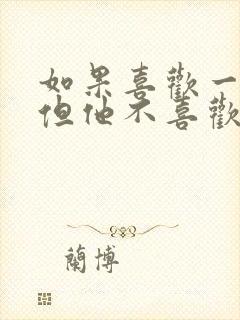 如果喜歡一
但他不喜歡
蘭博